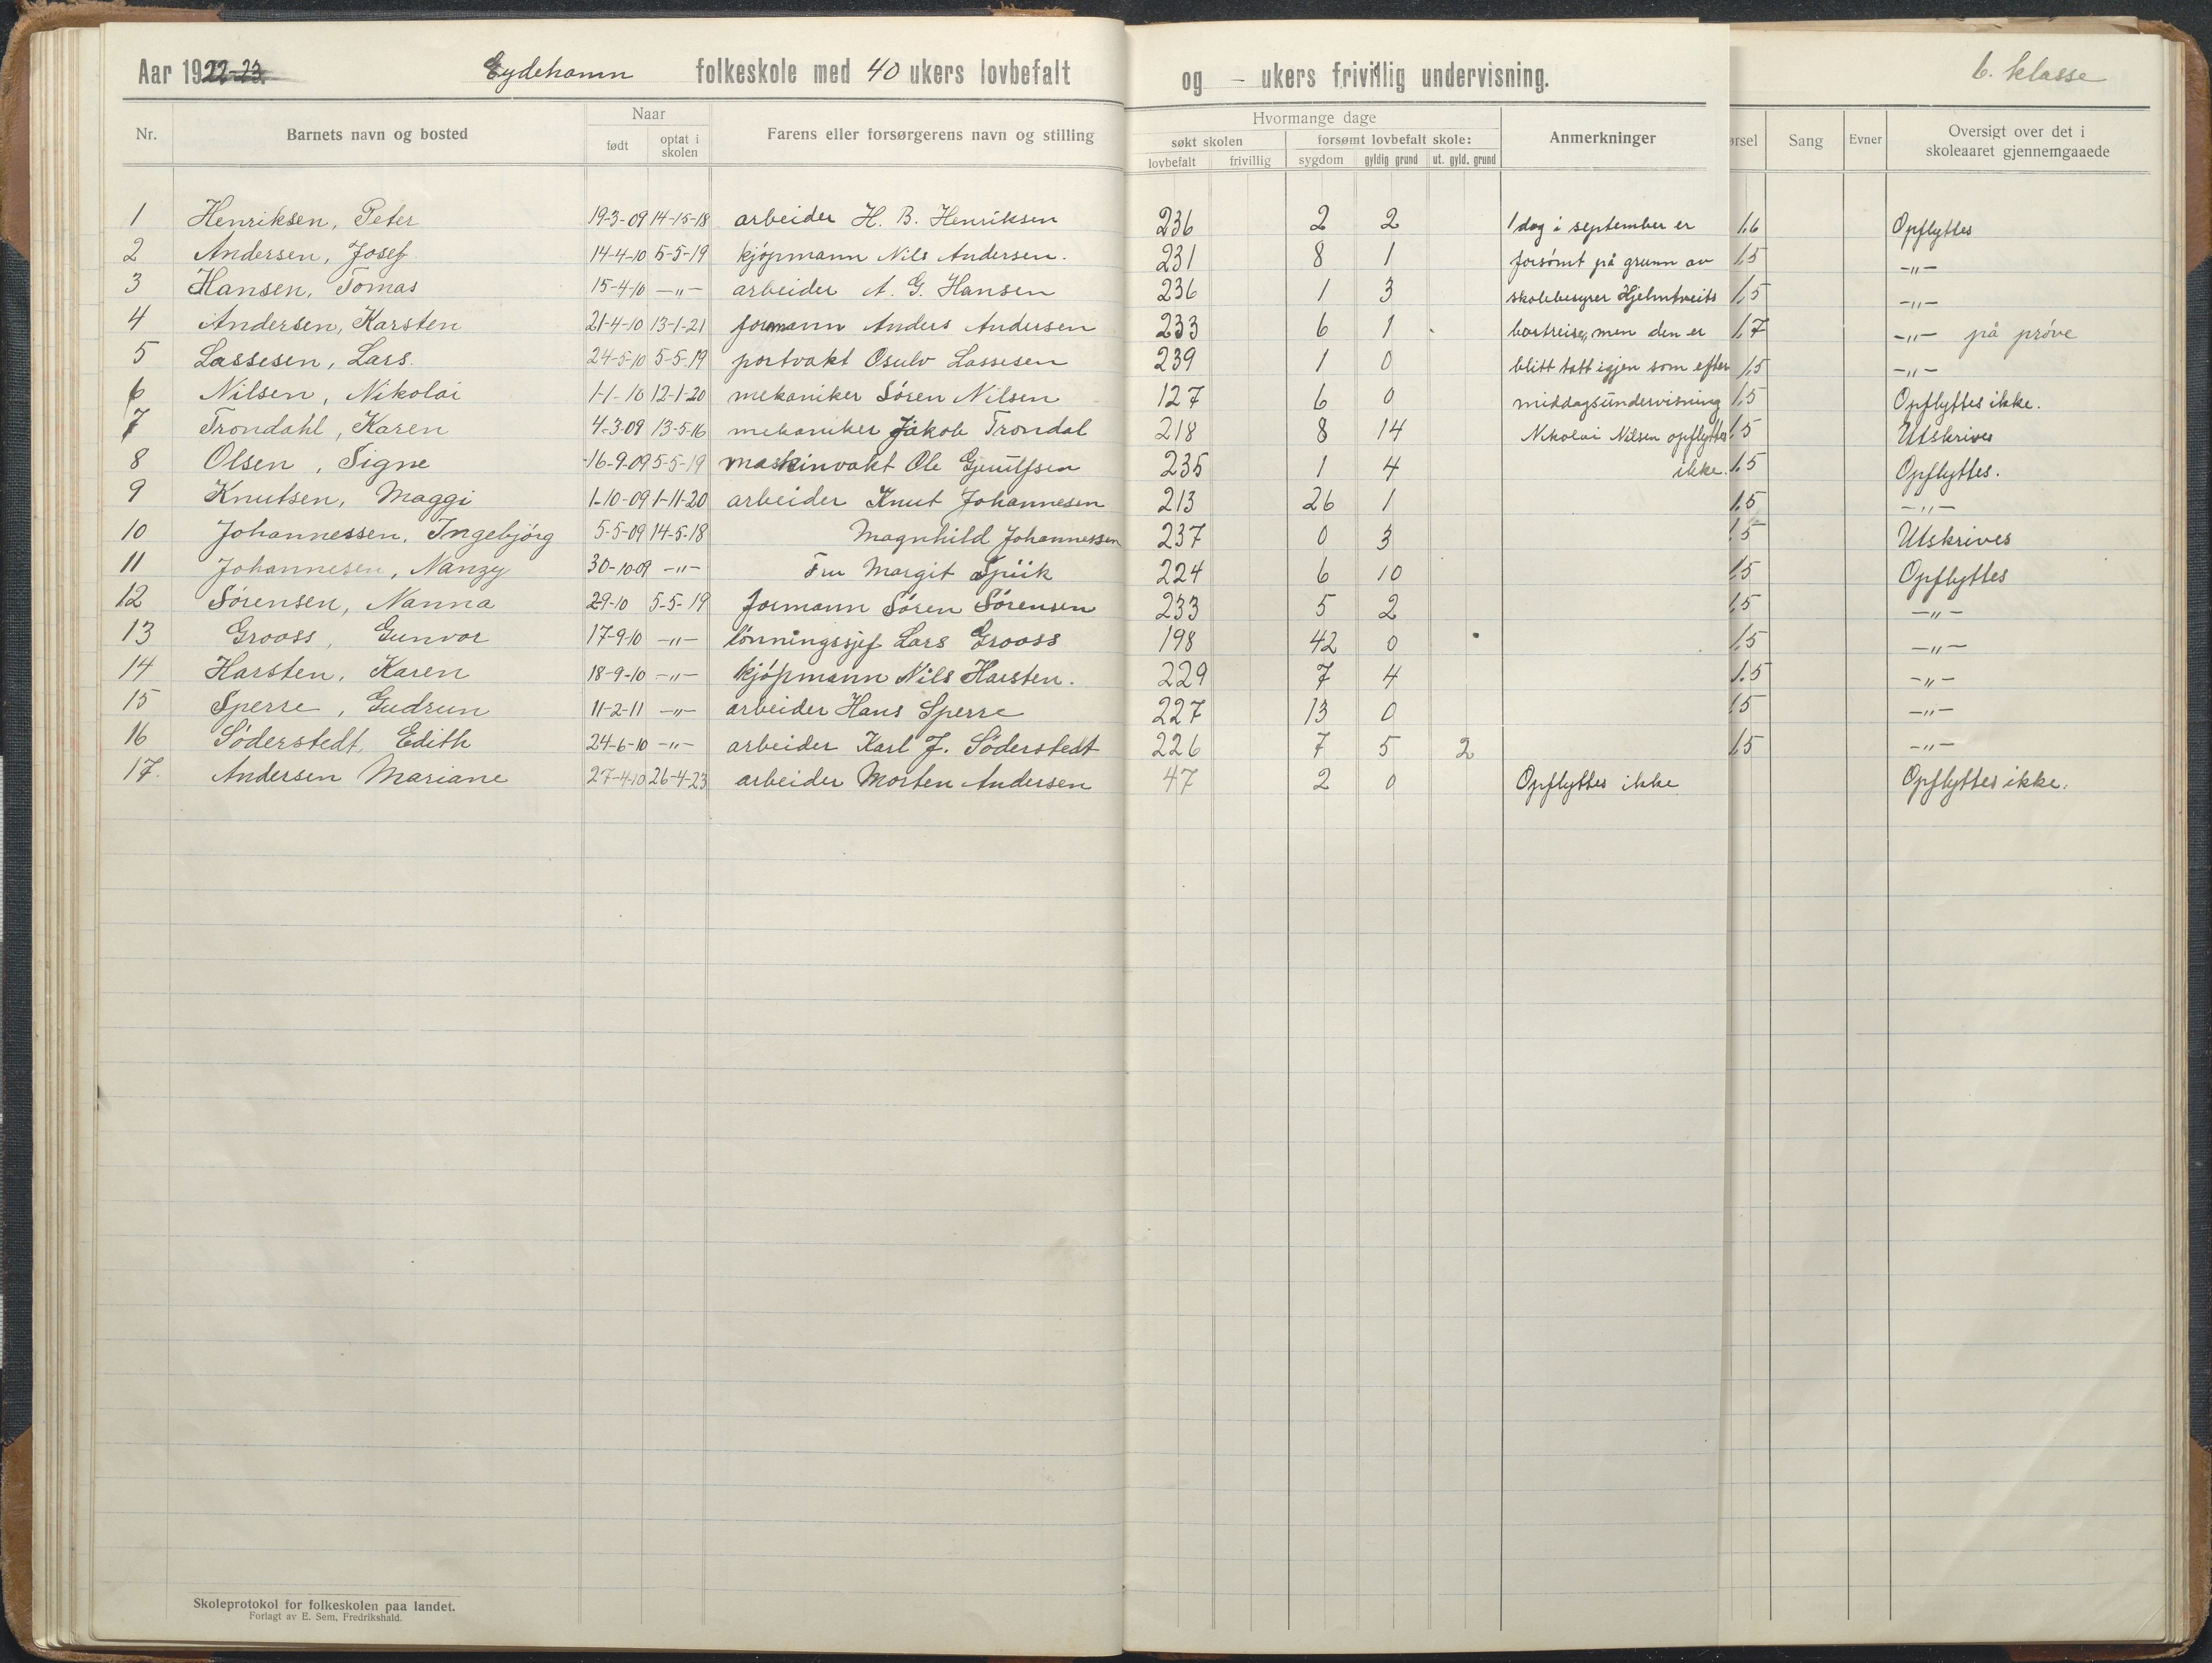 Aar 1922-23. Eydehamn folkeskole med 40 ukers lovbefalt og - ukers frivillig undervisning. 6. klasse
Naar Hvormange dage
Nr. Barnets navn og bosted født optat i skolen Farens eller forsørgerens navn og stilling søkt skolen forsømt lovbefalt skole: Anmerkninger ørsel Sang Evner Oversigt over det i skoleaaret gjennemgaaede
lovbefalt frivillig sygdom gyldig grund ut. gyld. grund
1 Henriksen, Peter 19-3-09 14-15-18 arbeider H. B. Henriksen 236 2 2 1 dag i september er 1.6 Opflyttes
2 Andersen, Josef 14-4-10 5-5-19 kjøpmann Nils Andersen. 231 8 1 forsømt på grunn av 1.5 -"-
3 Hansen, Tomas 15-4-10 -"- arbeider A. G. Hansen 236 1 3 skolebesyrer Hjelmtveits 1,5 -"-
4 Andersen, Karsten 21-4-10 13-1-21 formann Anders Andersen 233 6 1 bortreise, men den er 1.7 -"- på prøve
5 Lassesen, Lars. 24-5-10 5-5-19 portvakt Osulv Lassesen 239 1 0 blitt tatt igjen som efter 1,5 -"-
6 Nilsen, Nikolai 1-1-10 12-1-20 mekaniker Søren Nilsen 127 6 0 middagsundervisning 1.5 Opflyttes ikke.
7 Trondahl, Karen 4-3-09 13-5-16 mekaniker Jakob Trondal 218 8 14 Nikolai Nilsen opflyttes 1.5 Utskrives
8 Olsen, Signe 16-9-09 5-5-19 maskinvakt Ole Gjeulfsen 235 1 4 ikke. 1.5 Opflyttes.
9 Knutsen, Maggi 1-10-09 1-11-20 arbeider Knut Johannesen 213 26 1 1.5 -"-
10 Johannessen, Ingebjørg 5-5-09 14-5-18 Magnhild Johannessen 237 0 3 1.5 Utskrives
11 Johannesen, Nanzy 30-10-09 -"- Fru Margit Spiik 224 6 10 1.5 Opflyttes
12 Sørensen, Nanna 29-10 5-5-19 formann Søren Sørensen 233 5 2 1.5 -"-
13 Grooss, Gunvor 17-9-10 -"- lønningssjef Lars Grooss 198 42 0 1.5 -"-
14 Harsten, Karen 18-9-10 -"- kjøpmann Nils Harsten. 229 7 4 1.5 -"-
15 Sperre, Gudrun 11-2-11 -"- arbeider Hans Sperre 227 13 0 1.5 -"-
16 Söderstedt, Edith 24-6-10 -"- arbeider Karl J. Söderstedt 226 7 5 2 1.5 -"-
17. Andersen Mariane 27-4-10 26-4-23 arbeider Morten Andersen 47 2 0 Opflyttes ikke Opflyttes ikke.
Skoleprotokol for folkeskolen paa landet.
Forlagt av E. Sem, Fredrikshald.